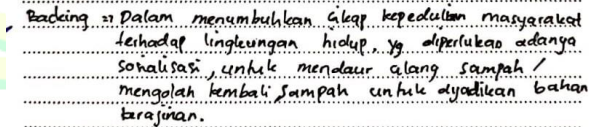 Backing => Dalam menumbuhkan sikap kepedulian masyarakat
terhadap lingkungan hidup, yg diperlukan adanya
sosialisasi, untuk mendaur ulang sampah /
mengolah kembali sampah untuk dijadikan bahan
kerajinan.